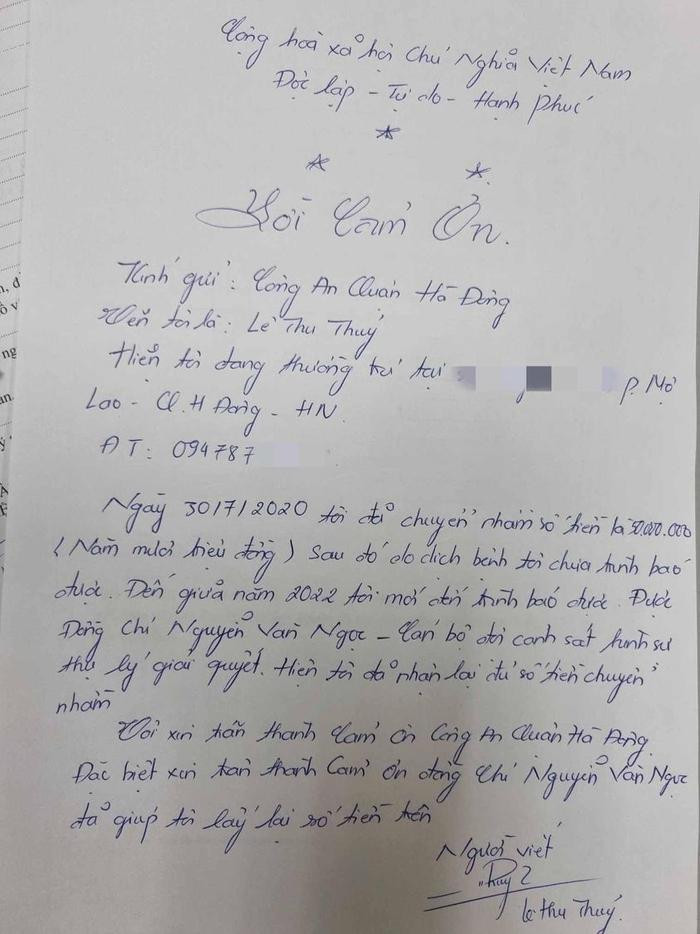 Cộng hoà xã hội Chủ Nghĩa Việt Nam
Độc lập - Tự do - Hạnh Phúc
Lời Cảm Ơn.
Kính gửi: Công An Quận Hà Đông
Tên tôi là: Lê Thu Thuỷ
Hiện tôi đang thường trú tại P. Mộ
Lao - Q. H Đông - HN.
ĐT: 094787
Ngày 30/7/2020 tôi đã chuyển nhầm số tiền là 50.000.000
(Năm mươi triệu đồng) Sau đó do dịch bệnh tôi chưa trình báo
được. Đến giữa năm 2022 tôi mới đến trình báo được. Được
Đồng Chí Nguyễn Văn Ngọc - Cán bộ đội cảnh sát hình sự
thụ lý giải quyết. Hiện tôi đã nhận lại đủ số tiền chuyển
nhầm
Tôi xin chân thành Cảm ơn Công An Quận Hà Đông.
Đặc biệt xin chân thành Cảm ơn đồng Chí Nguyễn Văn Ngọc
đã giúp tôi lấy lại số tiền trên
Người viết
Thuỷ
Lê Thu Thuỷ.